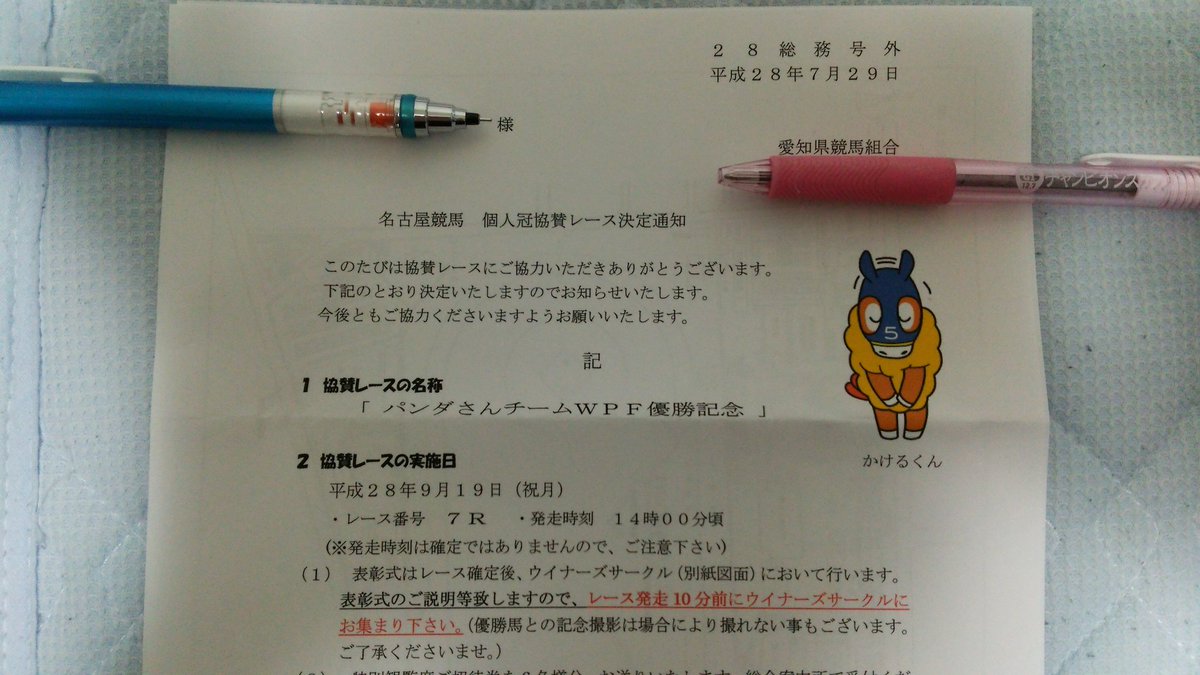 ２８総務号外
平成２８年７月２９日
様
愛知県競馬組合
チャンピオンズ
名古屋競馬　個人冠協賛レース決定通知
このたびは協賛レースにご協力いただきありがとうございます。
下記のとおり決定いたしますのでお知らせいたします。
今後ともご協力くださいますようお願いいたします。
5
記
1 協賛レースの名称
「 パンダさんチームＷＰＦ優勝記念 」
かけるくん
2 協賛レースの実施日
平成２８年９月１９日（祝月）
・レース番号　７Ｒ　・発走時刻　１４時００分頃
(※発走時刻は確定ではありませんので、ご注意下さい)
（１）　表彰式はレース確定後、ウイナーズサークル（別紙図面）において行います。
表彰式のご説明等致しますので、レース発走10分前にウイナーズサークルに
お集まり下さい。(優勝馬との記念撮影は場合により撮れない事もございます。
ご了承くださいませ。)